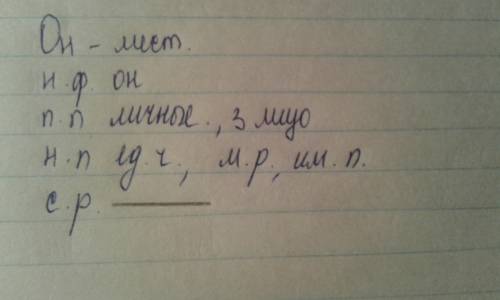 Он - мест.
н.ф. он
п.п личные., 3 лицо
н.п ед.ч., м.р., им.п.
с.р. ―――